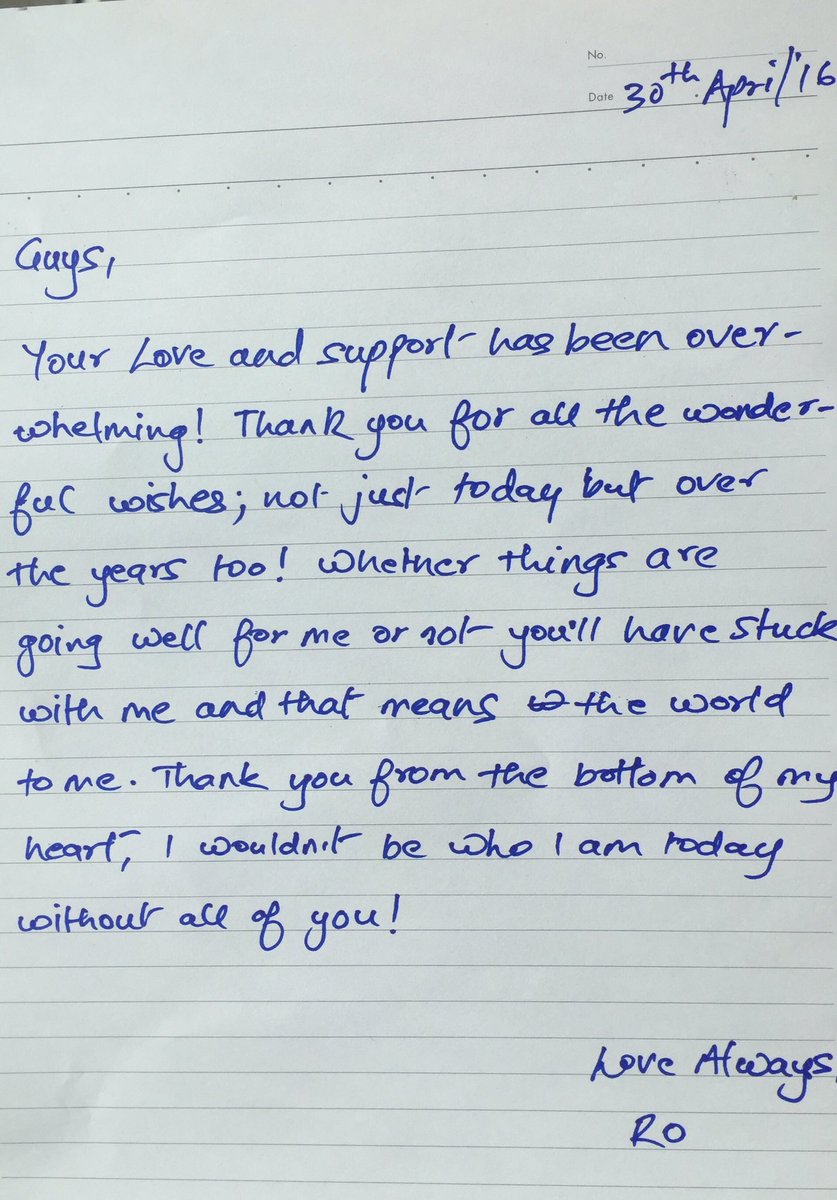 No.
Date 30th April/'16
Guys,
Your Love and support has been over-
whelming! Thank you for all the wonder-
ful wishes; not just today but over
the years too! Whether things are
going well for me or not you'll have stuck
with me and that means the world
to me. Thank you from the bottom of my
heart, I wouldn't be who I am today
without all of you!
Love Always,
RO